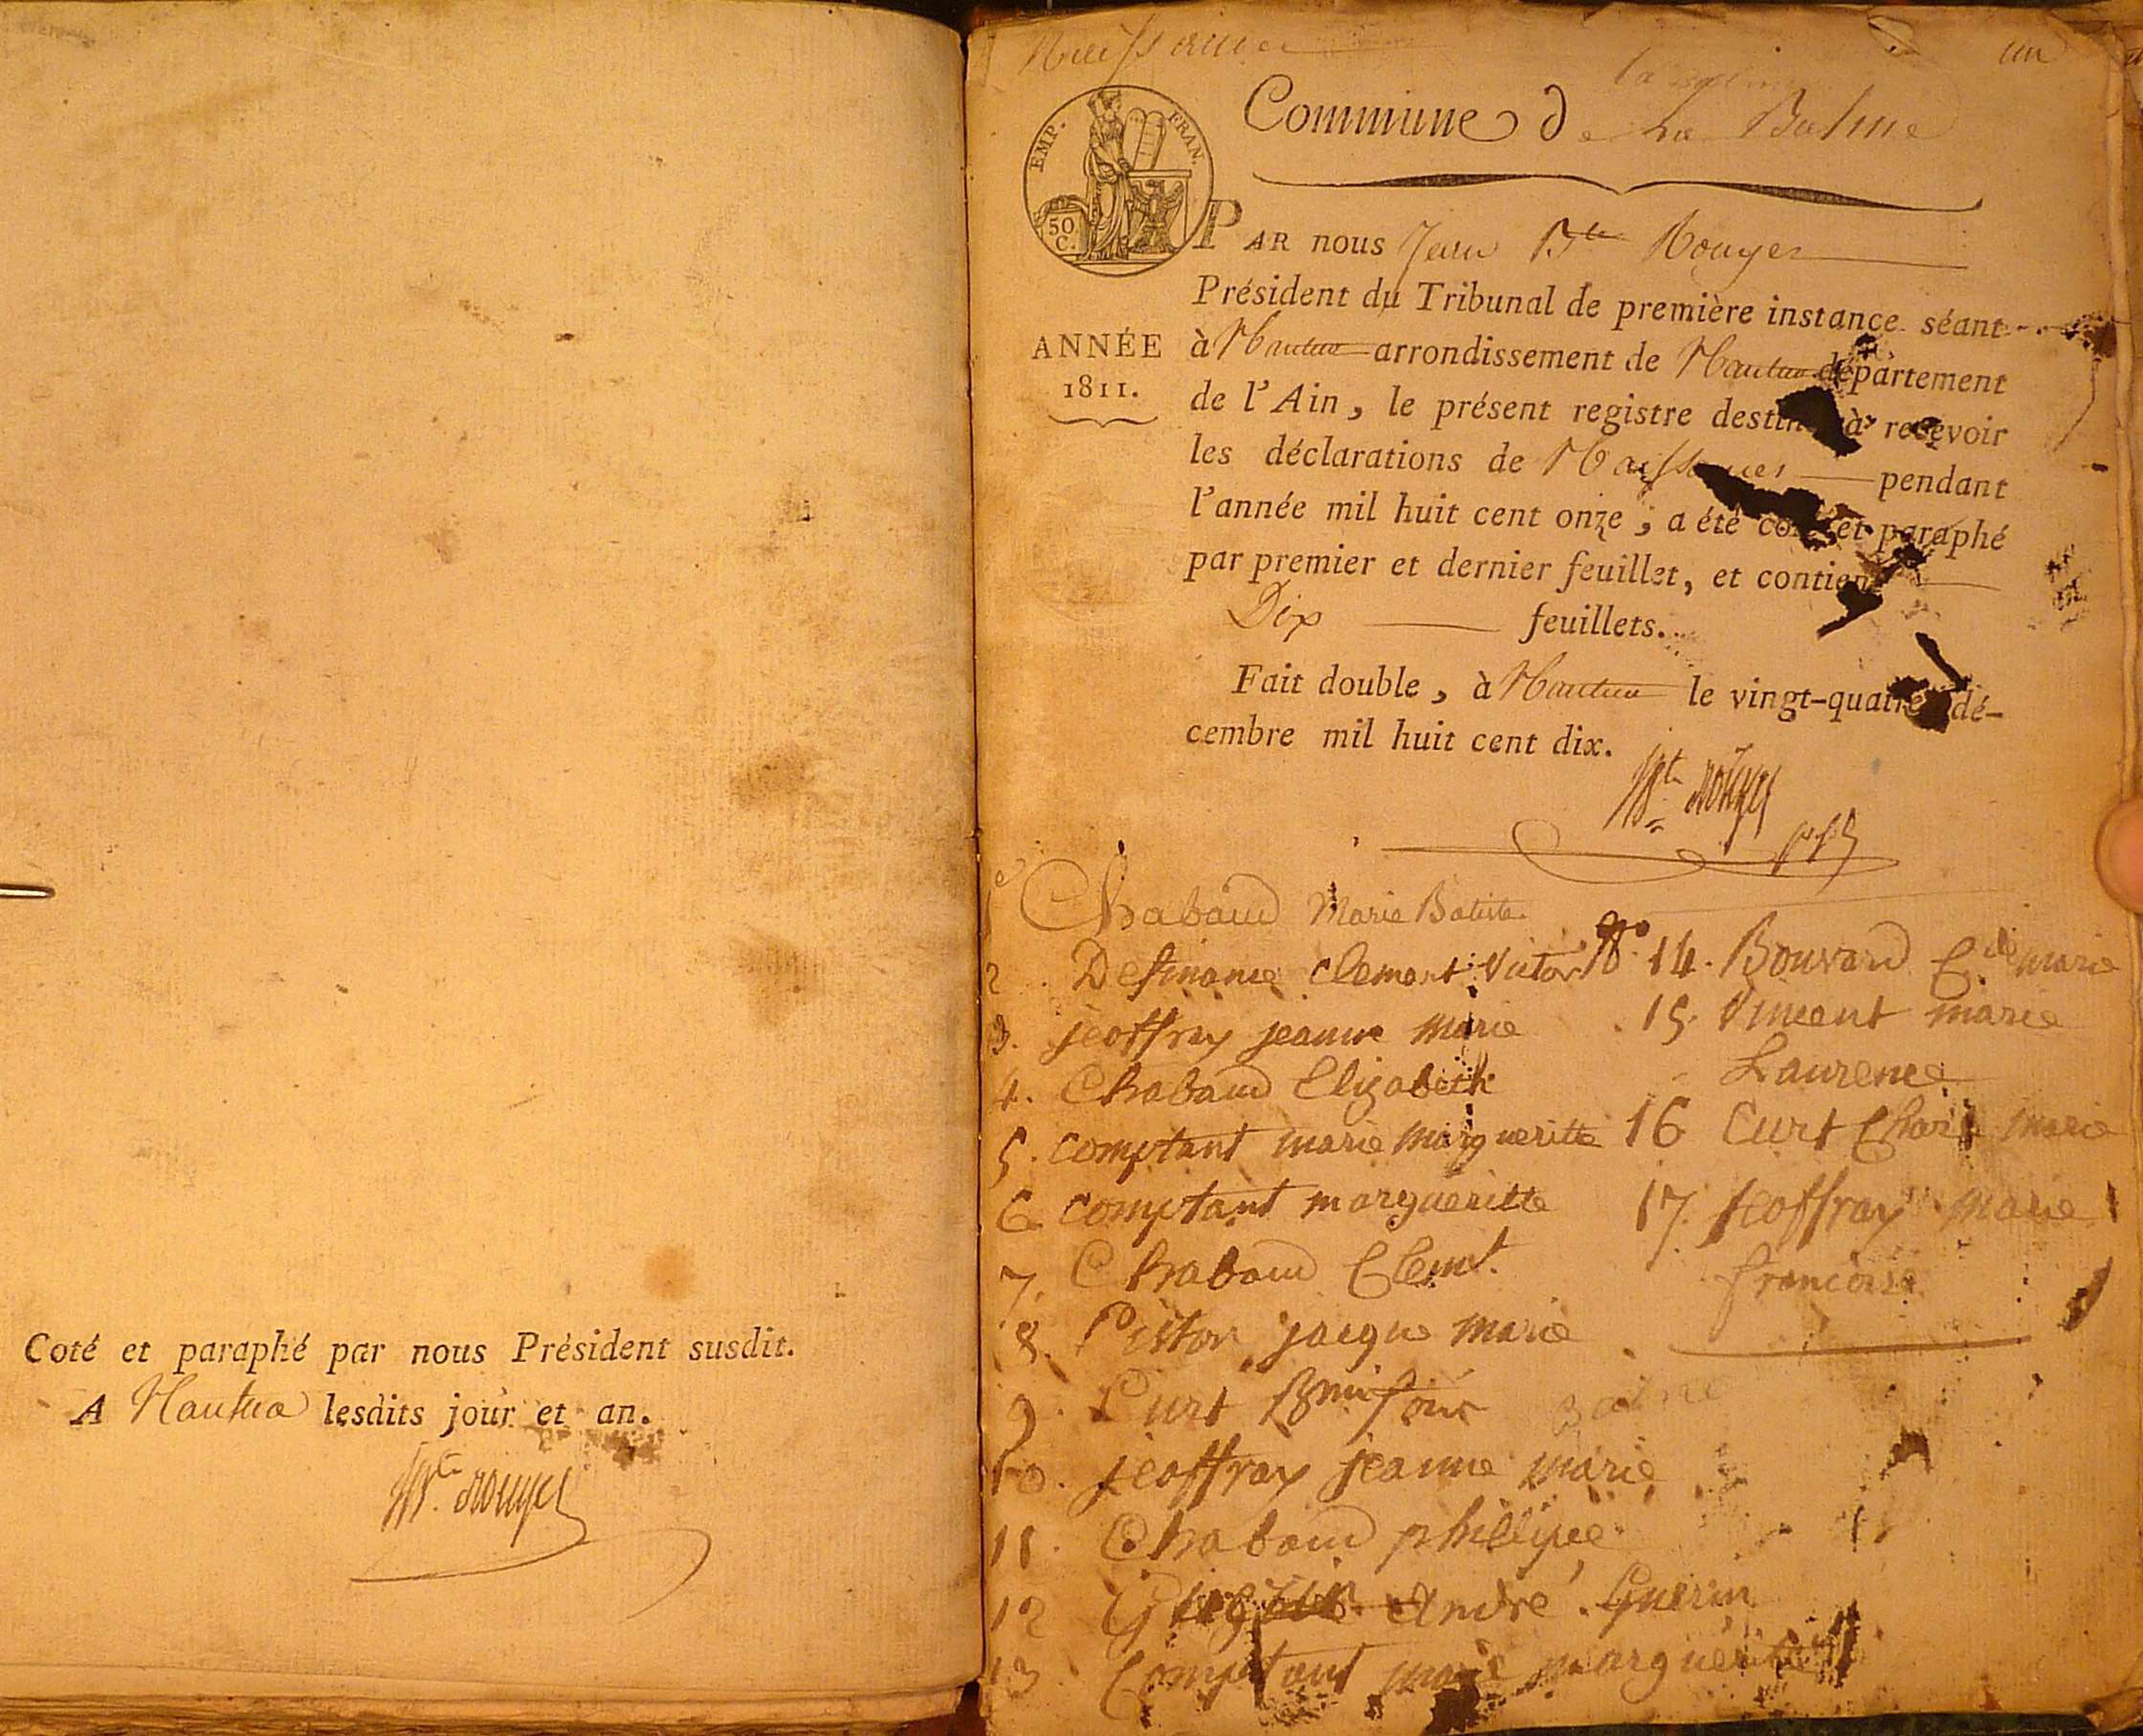 Coté et paraphé par nous Président susdit.
A Nantua lesdits jour et an.
Bte. Rouyer
Naissances
un
Commune de La Balme
EMP. FRAN.
50 C.
PAR nous Jean Bte Rouyer
Président du Tribunal de première instance séant
ANNÉE
1811.
à Nantua arrondissement de Nantua département
de l'Ain, le présent registre destiné à recevoir
les déclarations de Naissances pendant
l'année mil huit cent onze, a été coté et paraphé
par premier et dernier feuillet, et contient
Dix feuillets.
Fait double, à Nantua le vingt-quatre dé-
cembre mil huit cent dix.
Bte. Rouyer
Chabaud Marie Batiste.
2. Desmonie Clement Victor
3. jeoffray jeanne Marie
4. Chabaud Elizabeth
5. comptant marie margueritte
6. comptant margueritte
7. Chabaud Clemt.
8. Pistor jacque marie
9. Curt
10. jeoffray jeanne marie
11. Chabaud philipe
12 André Guerin
13. Comptant marie margueritte
No. 14. Bouvard Cde marie
15. Vincent marie
Laurence
16 Curt Charle marie
17. jeoffray marie
francoise